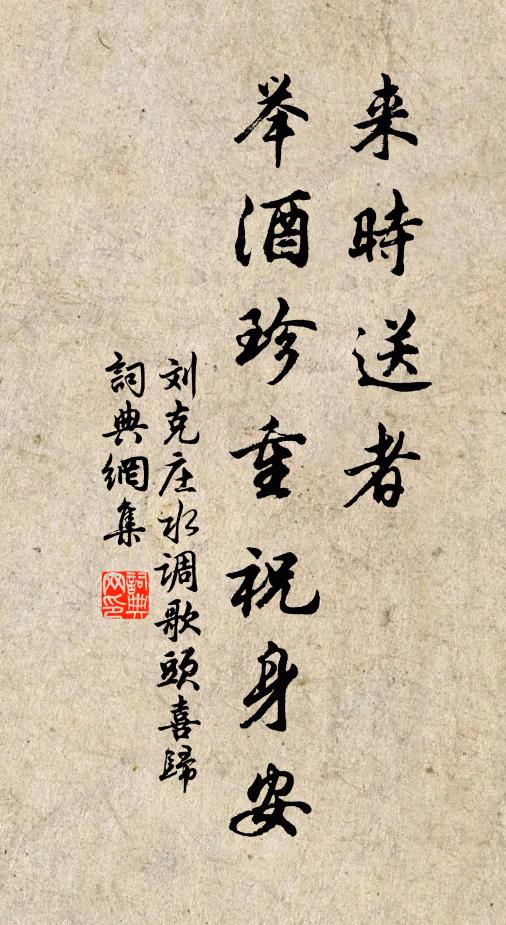 来時送者
举酒珍重祝身安
刘克庄水调歌頭喜歸
詞典網集
詞典网印